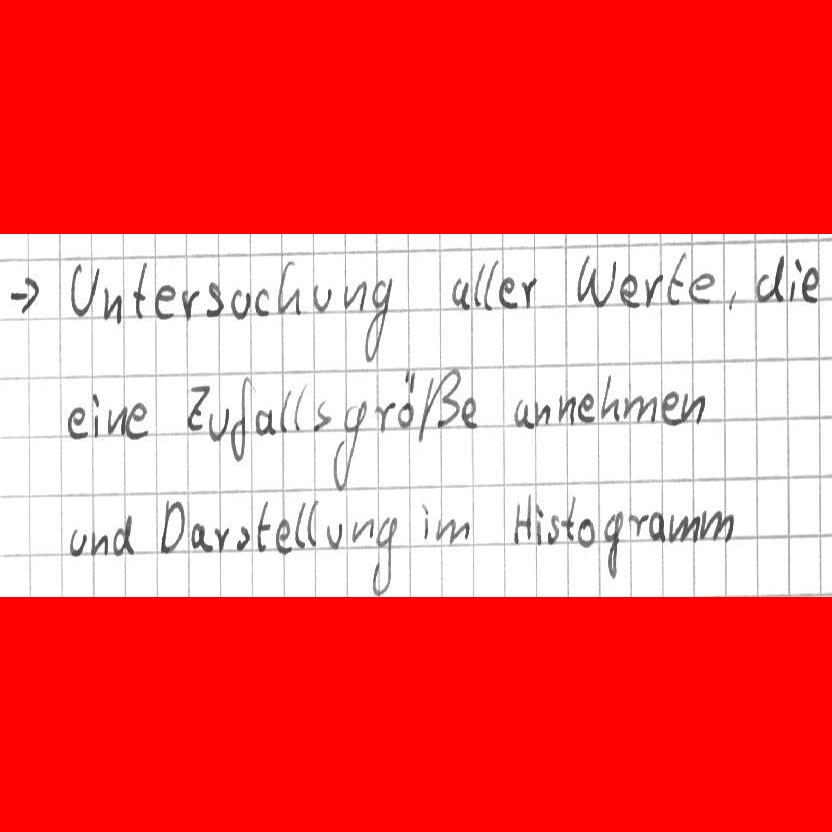 → Untersuchung aller Werte, die
eine Zufallsgröße annehmen
und Darstellung im Histogramm